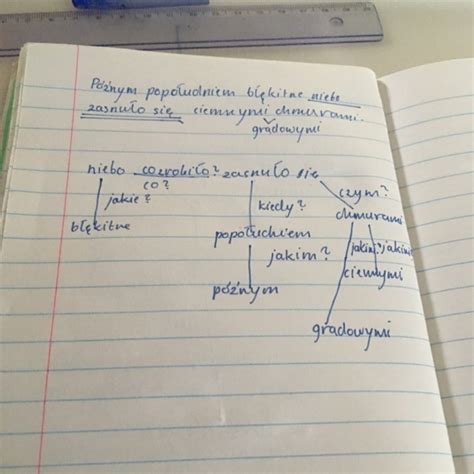 Późnym popołudniem błękitne niebo
zasnuło się ciemnymi chmurami.
gradowymi
niebo co zrobiło? zasnuło się
co?
jakie?
kiedy?
czym?
błękitne
popołudniem
chmurami
jakim?
jakimi? jakimi
późnym
ciemnymi
gradowymi